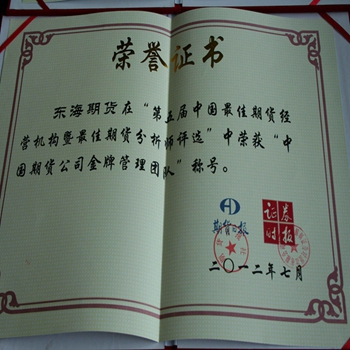 荣誉证书
东海期货在“第五届中国最佳期货经
营机构暨最佳期货分析师评选”中荣获“中
国期货公司金牌管理团队”称号。
期货日报
证券时报
二〇一二年七月